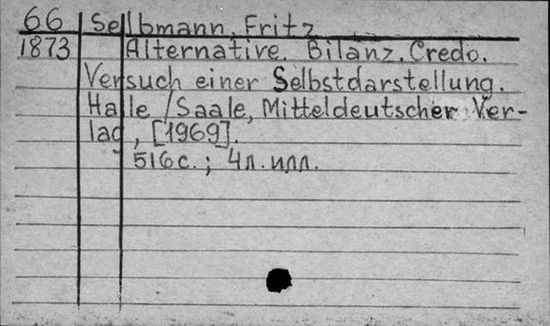 66 Selbmann, Fritz
1873 Alternative. Bilanz. Credo.
Versuch einer Selbstdarstellung.
Halle /Saale, Mitteldeutscher Ver-
lag, [1969].
516с.; 4л. илл.